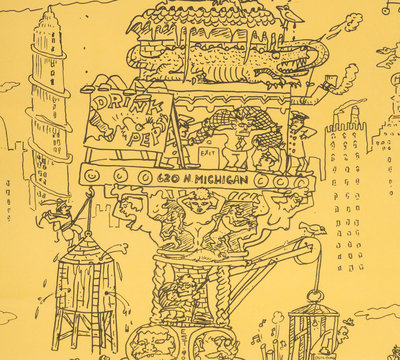 DRINK
PEP
EXIT
620 N. MICHIGAN